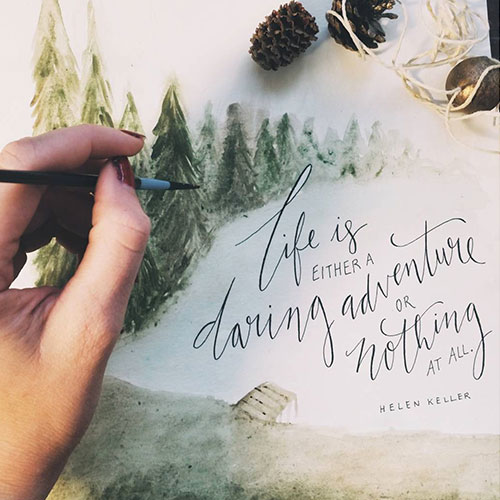 life is
EITHER A
daring adventure
OR
nothing
AT ALL.
HELEN KELLER